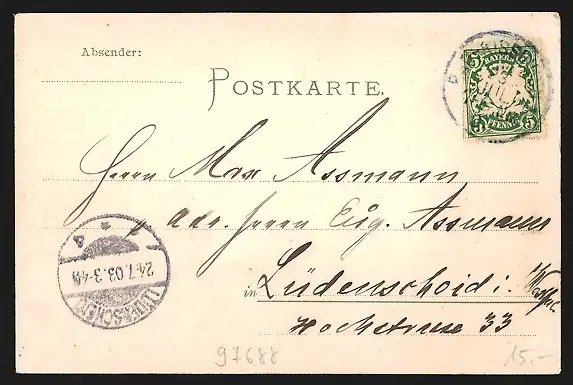 Absender:
POSTKARTE.
5 BAYERN 5
5 PFENNIG 5
Herrn Max Assmann
Adr. Herrn Eug. Assmann
in Lüdenscheid i. Westf.
Hochstrasse 33
24.7.03.3-4N
LÜDENSCHEID
97688
15.-